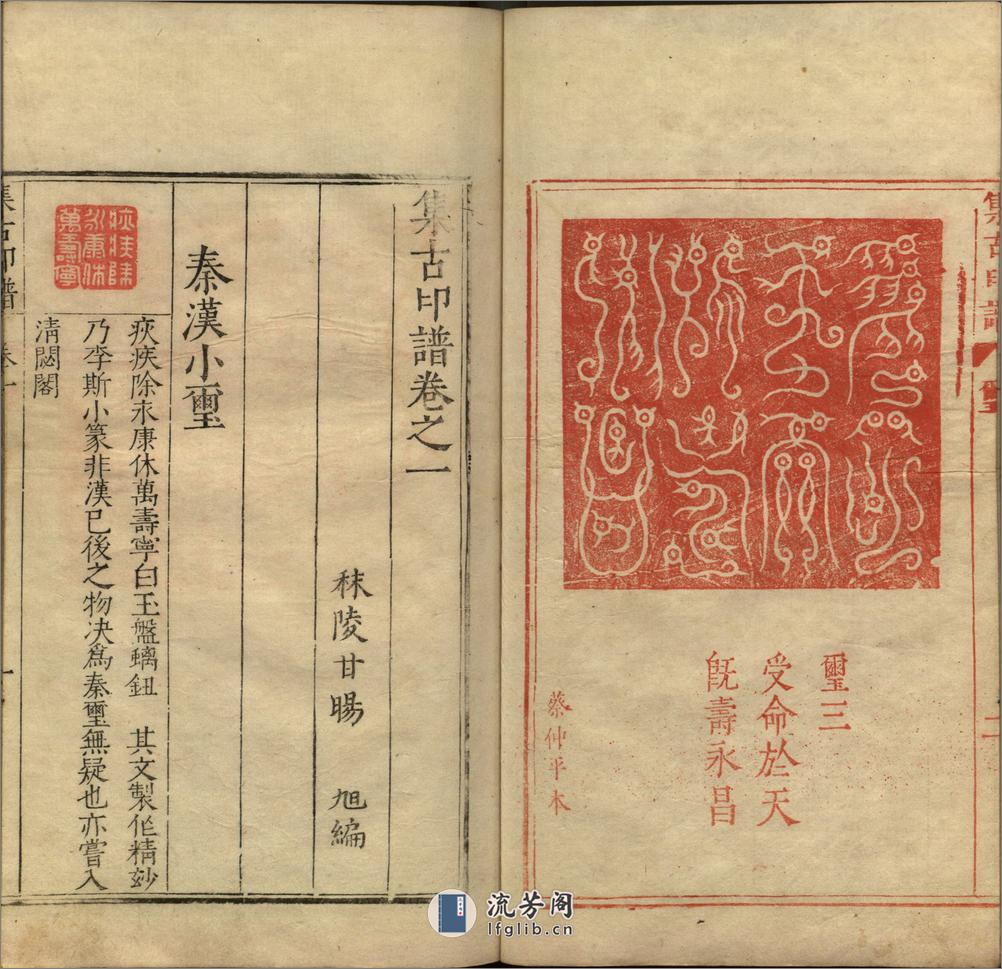 璽三
受命於天
既壽永昌
蔡仲平本
集古印譜卷之一
秣陵甘暘 旭編
秦漢小璽
疢疾除永康休萬壽寧白玉盤螭鈕 其文製作精妙
乃李斯小篆非漢已後之物決爲秦璽無疑也亦嘗入
清閟閣
疢疾除
永康休
萬壽寧
集古印譜 卷一 一
集古印譜 璽 二
流芳阁
lfglib.cn